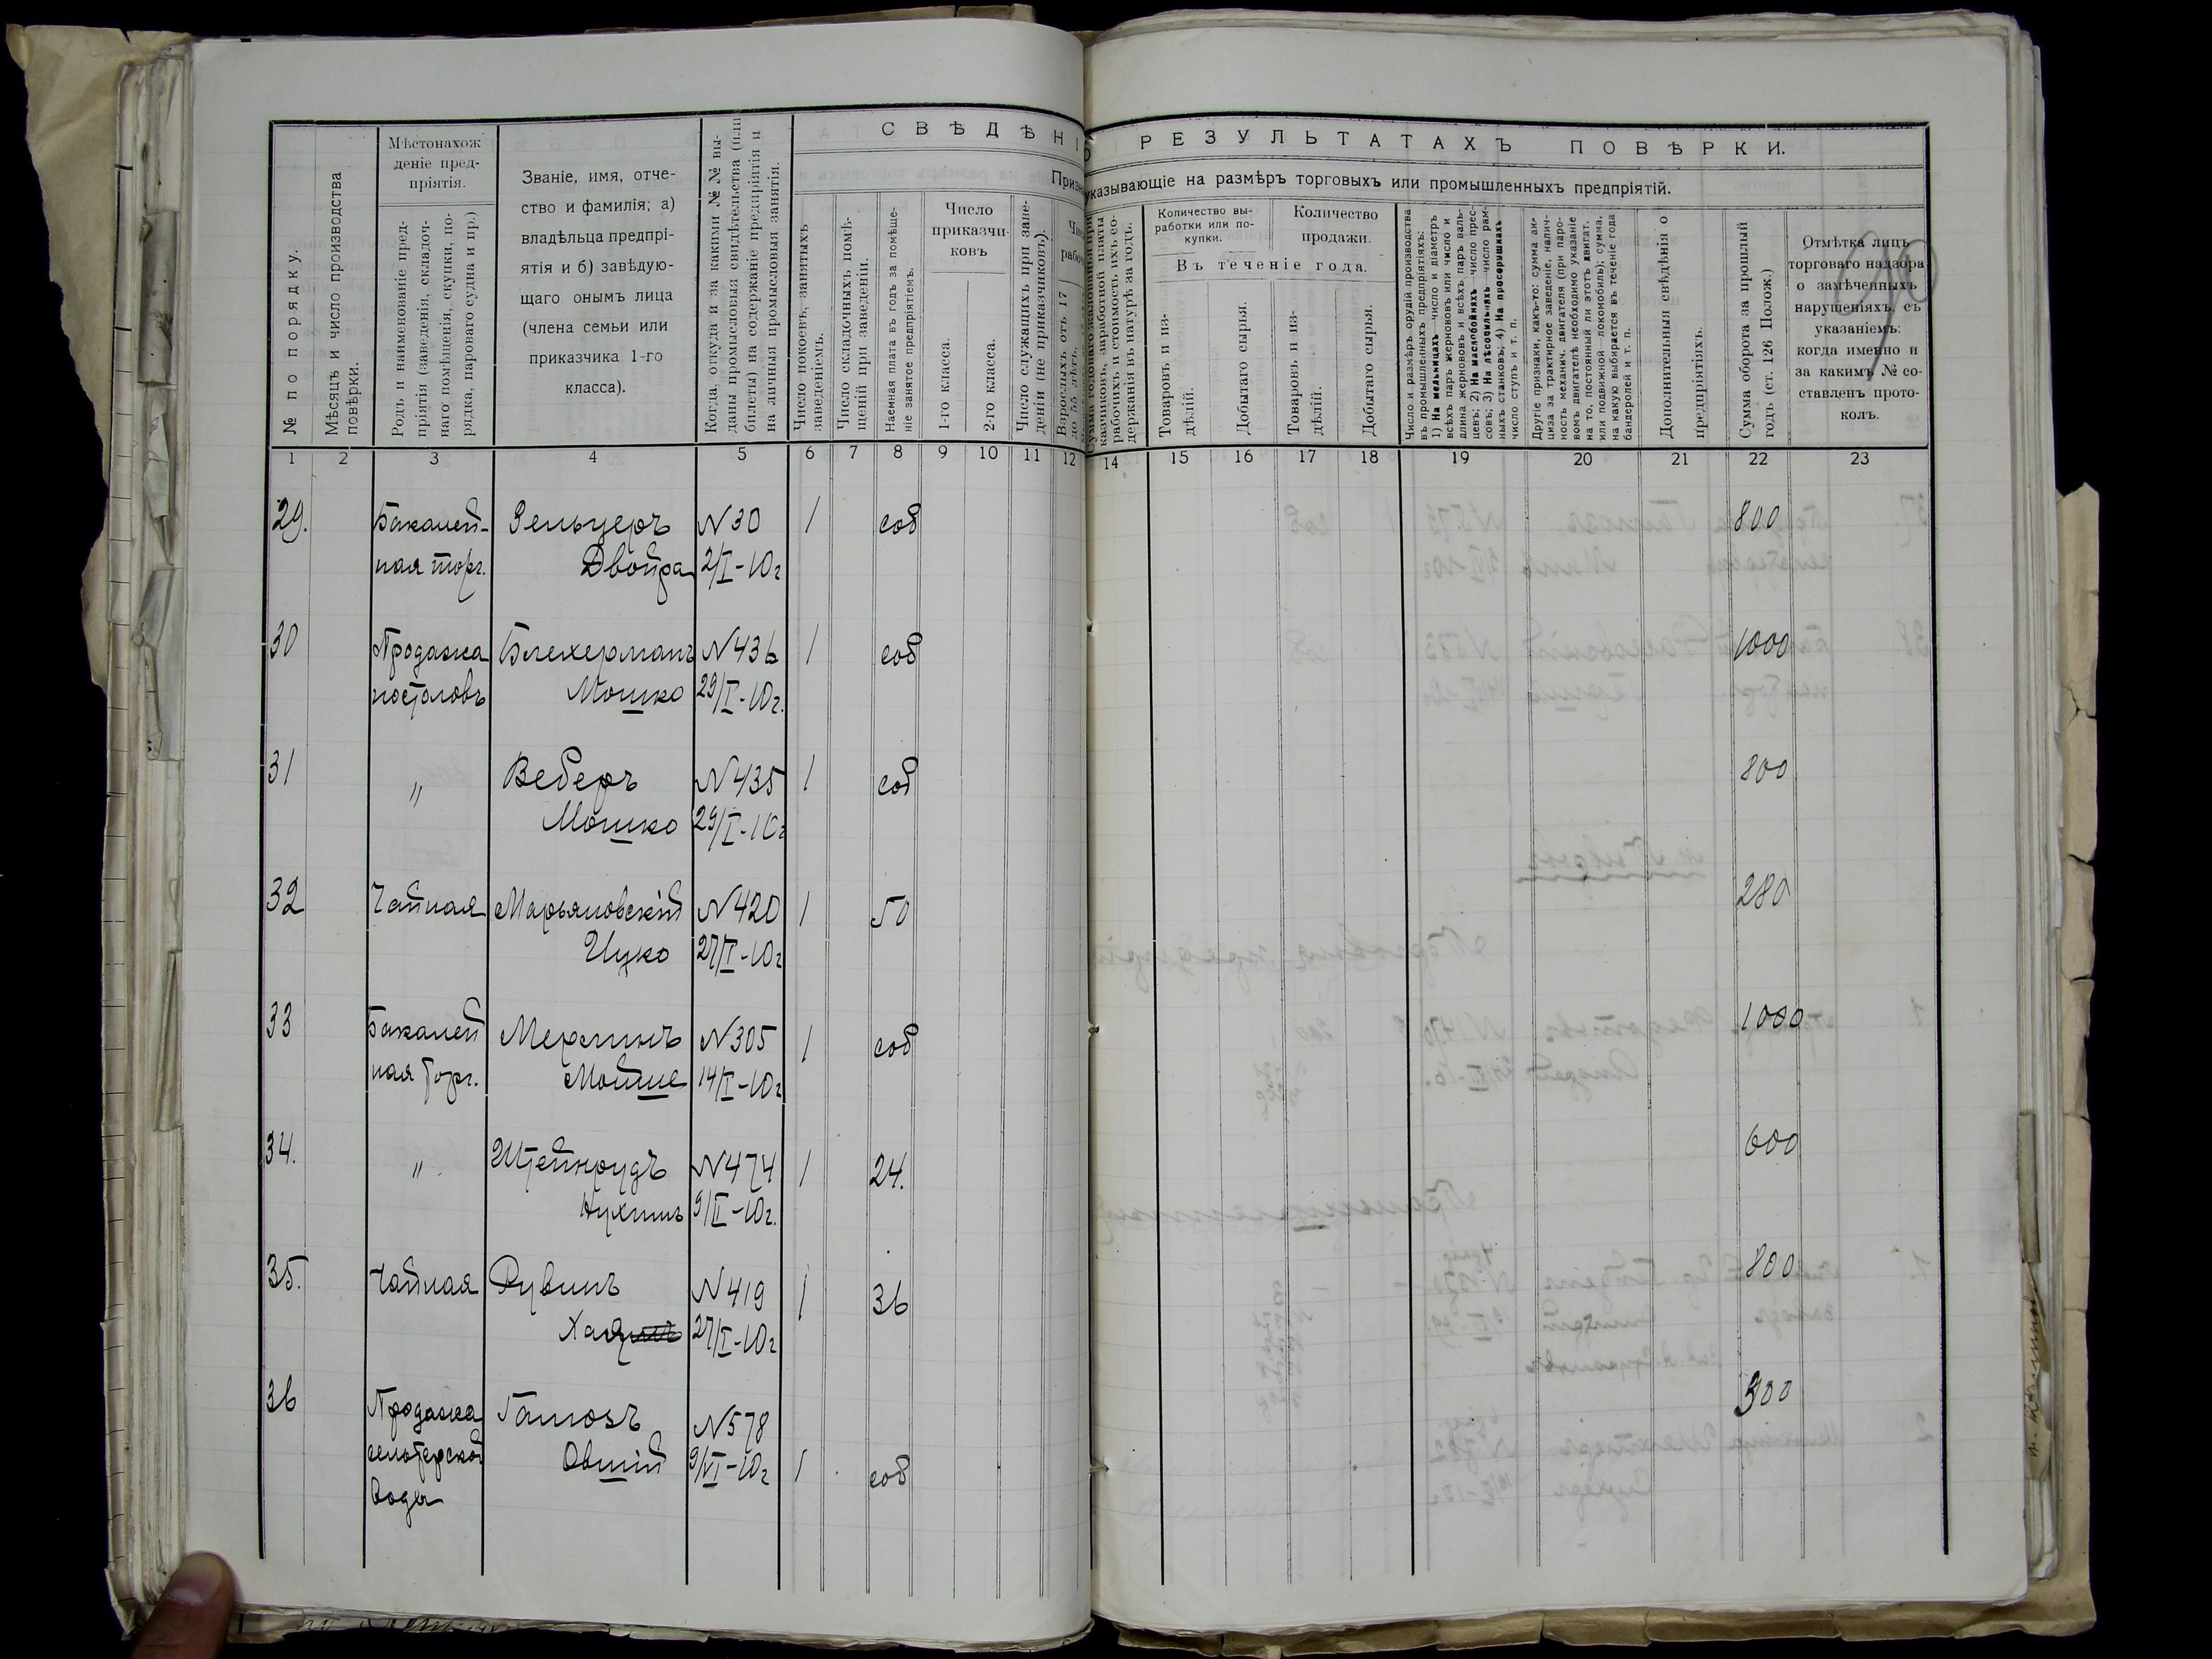 СВѢДѢНІ
О РЕЗУЛЬТАТАХЪ ПОВѢРКИ.
Призна
указывающіе на размѣръ торговыхъ или промышленныхъ предпріятій.
№ по порядку.
Мѣсяцъ и число производства
повѣрки.
Мѣстонахож
деніе пред-
пріятія.
Родъ и наименованіе пред-
пріятія (заведенія, складоч-
наго помѣщенія, скупки, по-
рядка, парового судна и пр.)
Званіе, имя, отче-
ство и фамилія; а)
владѣльца предпрі-
ятія и б) завѣдую-
щаго онымъ лица
(члена семьи или
приказчика 1-го
класса).
Когда, откуда и за какими №№ вы-
даны промысловыя свидѣтельства (или
билеты) на содержаніе предпріятія и
на личныя промысловыя занятія.
Число покоевъ, занятыхъ
заведеніемъ.
Число складочныхъ помѣ-
щеній при заведеніи.
Наемная плата въ годъ за помѣще-
ніе занятое предпріятіемъ.
Число
приказчи-
ковъ
1-го класса.
2-го класса.
Число служащихъ при заве-
деніи (не приказчиковъ).
Взрослыхъ отъ 17
до 55 лѣтъ.
Сумма годоваго жалованья при
казчиковъ, заработной платы
рабочихъ и стоимость ихъ со-
держанія въ натурѣ за годъ.
Количество вы-
работки или по-
купки.
Количество
продажи.
Въ теченіе года.
Товаровъ и из-
дѣлій.
Добытаго сырья.
Товаровъ и из-
дѣлій.
Добытаго сырья.
Число и размѣръ орудій производства
въ промышленныхъ предпріятіяхъ:
1) На мельницахъ—число и діаметръ
всѣхъ паръ жернововъ или число и
длина жернововъ и всѣхъ паръ валь-
цевъ; 2) На маслобойняхъ—число прес-
совъ; 3) На лѣсопильняхъ—число рам-
ныхъ станковъ; 4) На просорушкахъ
число ступъ и т. п.
Другіе признаки, какъ-то: сумма ак-
циза за трактирное заведеніе, налич-
ность механич. двигателя (при паро-
вомъ двигателѣ необходимо указаніе
на то, постоянный ли этотъ двигат.
или подвижной—локомобиль); сумма,
на какую выбирается въ теченіе года
бандеролей и т. п.
Дополнительныя свѣдѣнія о
предпріятіяхъ.
Сумма оборота за прошлый
годъ (ст. 126 Полож.)
Отмѣтка лицъ
торговаго надзора
о замѣченныхъ
нарушеніяхъ, съ
указаніемъ:
когда именно и
за какимъ № со-
ставленъ прото-
колъ.
1 2 3 4 5 6 7 8 9 10 11 12 14 15 16 17 18 19 20 21 22 23
29. Бакалей- Зельцеръ N 30 1 соб 800
ная торг. Двойра 2/I-10г
30 Продажа Блехерманъ N 436 1 соб 1000
посталовъ Мошко 29/I-10г.
31 " Веберъ N 435 1 соб 800
Мошко 29/I-10г
32 Чайная Марьяновскій N 420 1 50 280
Ицко 27/I-10г
33 Бакалей Мерлинъ N 305 1 соб 1000
ная торг. Мойше 14/I-10г
34. " Штейнрудъ N 474 1 24. 600
Нухимъ 9/II-10г.
35. Чайная Рувинъ N 419 1 36 800
27/I-10г
36 Продажа Гатозъ N 578 300
сельтерской Овшій 9/VI-10г 1 соб
воды